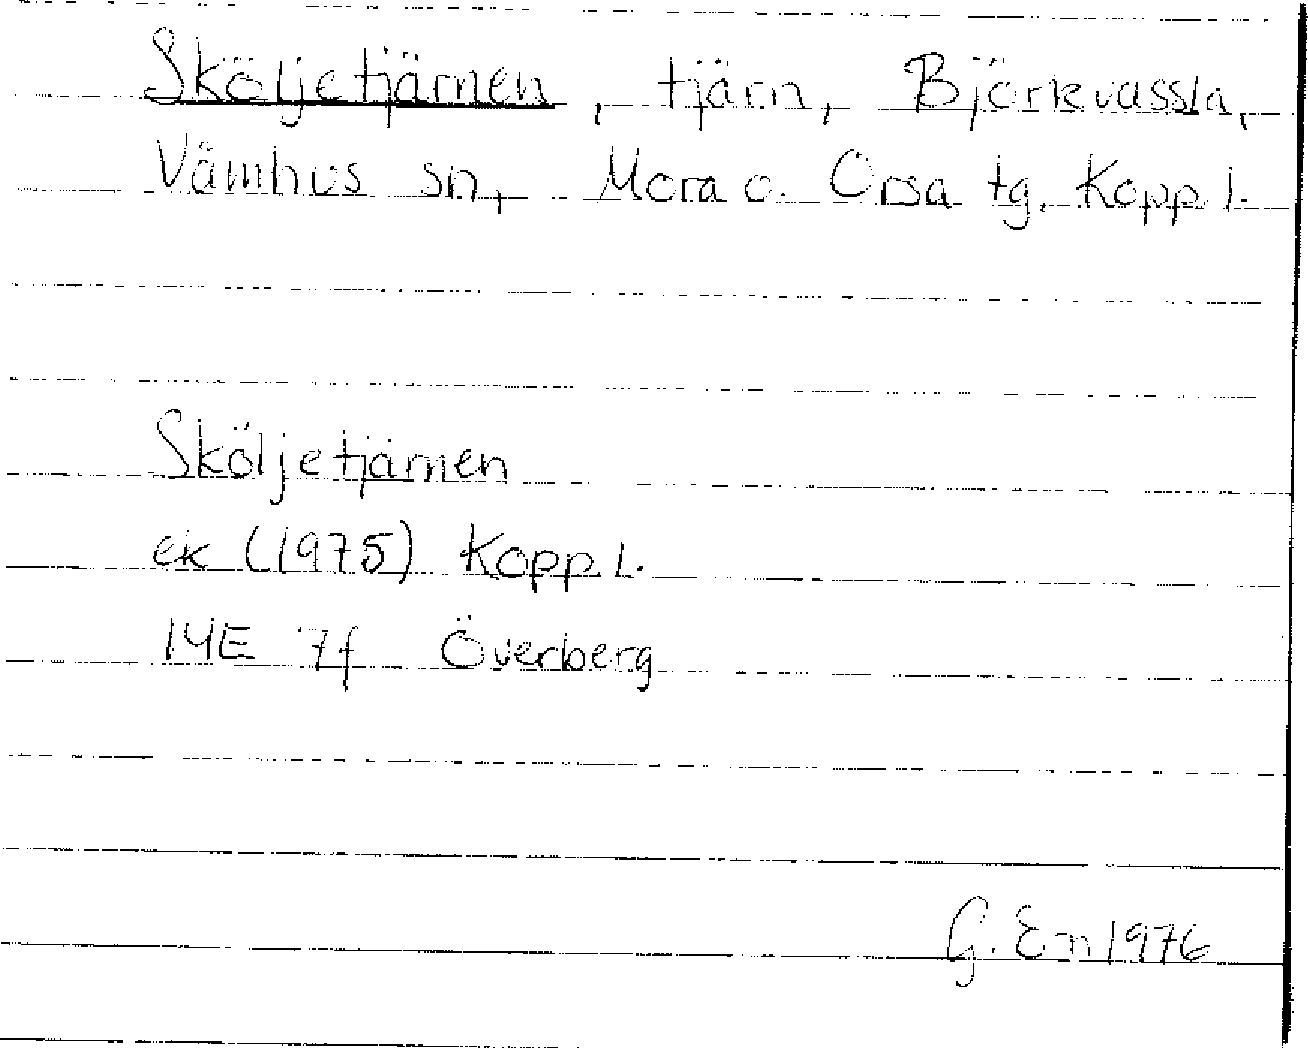 Sköljetjärnen, tjärn, Björkvassla,
Våmhus sn, Mora o. Orsa tg. Kopp l.
Sköljetjärnen
ek (1975) Kopp l.
14E 7f Överberg
G. En 1976